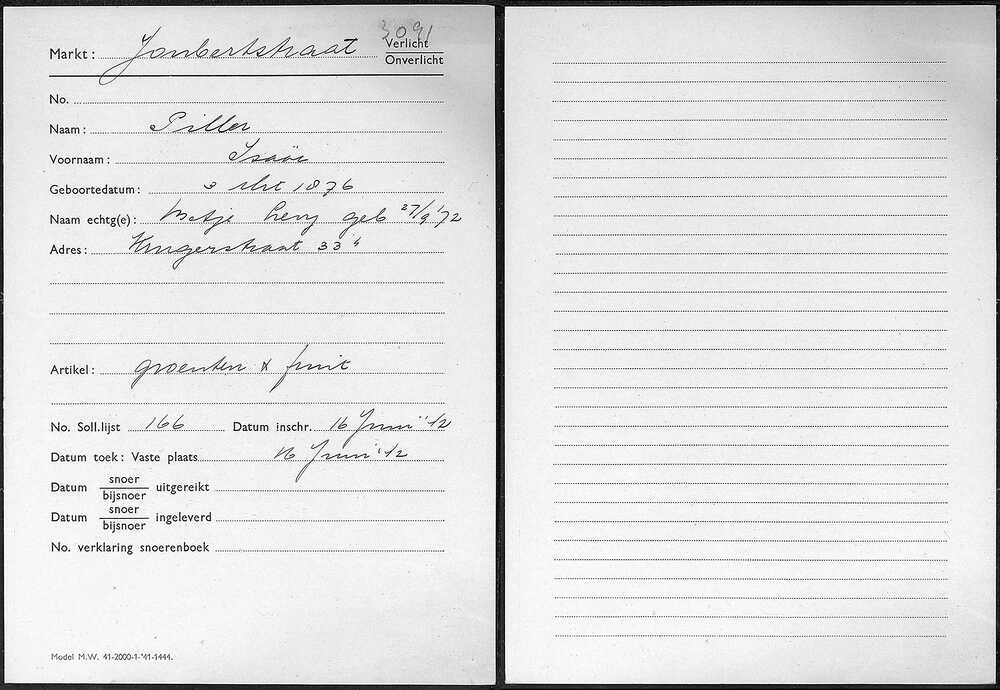 3091
Markt: Joubertstraat Verlicht
Onverlicht
No.
Naam: Piller
Voornaam: Isaäc
Geboortedatum: 3 1876
Naam echtg(e): Metje Levy geb 27/9 '72
Adres: Krugerstraat 33
Artikel: groenten & fruit
No. Soll.lijst 166 Datum inschr. 16 Juni '12
Datum toek: Vaste plaats 16 Juni '12
Datum snoer/bijsnoer uitgereikt
Datum snoer/bijsnoer ingeleverd
No. verklaring snoerenboek
Model M.W. 41-2000-1-'41-1444.